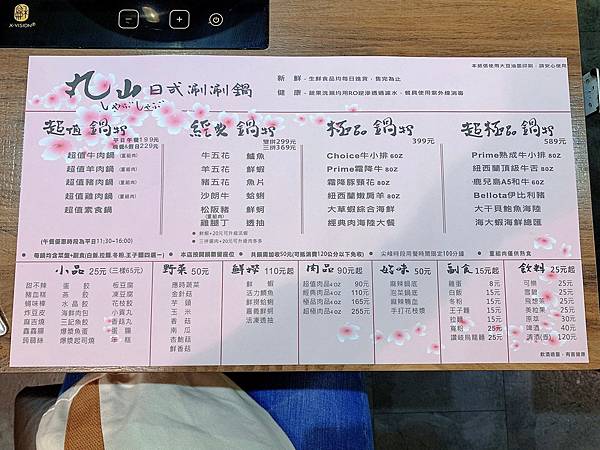 X-VISION
本紙張使用大豆油墨印刷，請安心使用
丸山日式涮涮鍋
しゃぶしゃぶ
新 鮮 - 生鮮食品均每日進貨，售完為止
健 康 - 蔬果洗滌均用RO逆滲透過濾水，餐具使用紫外線消毒
超值鍋物
平日午餐199元
晚餐&假日229元
超值牛肉鍋(重組肉)
超值羊肉鍋
超值豬肉鍋
超值雞肉鍋
超值素食鍋
(午餐優惠時段為平日11:30~16:00)
經典鍋物
雙拼299元
三拼369元
牛五花 鱸魚
羊五花 鮮蝦
豬五花 魚片
沙朗牛 蛤蜊
(重組肉)
松阪豬 鮮蚵
雞腿丁 透抽
鮮蝦+20元可升級活蝦
三拼雞肉+20元可升級肉多多
極品鍋物
399元
Choice牛小排 6OZ
Prime霜降牛 8OZ
霜降豚頸花 8OZ
紐西蘭嫩肩羊 8OZ
大草蝦綜合海鮮
經典肉海陸大餐
超極品鍋物
589元
Prime熟成牛小排 8OZ
紐西蘭頂級牛舌 8OZ
鹿兒島A5和牛 6OZ
Bellota伊比利豬
大干貝鮑魚海陸
海大蝦海鮮總匯
每鍋均含菜盤+副食(白飯,拉麵,冬粉,王子麵四選一)
本店按開鍋數留座位
共鍋需加收50元(可抵消費120公分以下免收)
尖峰時段用餐時間限定100分鐘
重組肉僅供熟食
小品 25元 (三樣65元)
甜不辣 蛋餃 板豆腐
豬血糕 燕餃 凍豆腐
蟳味棒 水晶餃 花枝餃
炸豆皮 海鮮肉包 小貢丸
麻吉燒 三記魚餃 香菇丸
鑫鑫腸 爆漿魚蛋 蛋腸
蒟蒻絲 爆漿起司燒 年糕
野菜 50元
應時蔬菜
金針菇
芋頭
玉米
香菇
南瓜
杏鮑菇
鮮香菇
鮮撈 110元起
鮮蝦
活力鯛魚
鮮撈蛤蜊
嘉義鮮蚵
活凍透抽
肉品 90元起
超值肉品4oz 90元
經典肉品4oz 110元
極品肉品4oz 165元
超極肉品4oz 255元
好味 50元
麻辣鍋底
泡菜鍋底
麻辣鴨血
手打花枝漿
副食 15元起
雞蛋 15元
白飯 15元
冬粉 15元
王子麵 15元
拉麵 15元
寬粉 25元
讚岐烏龍麵 25元
飲料 25元起
可樂 25元
雪碧 25元
飛想茶 25元
美粒果 25元
原萃 30元
啤酒 40元
清酒(壺) 120元
飲酒過量，有害健康